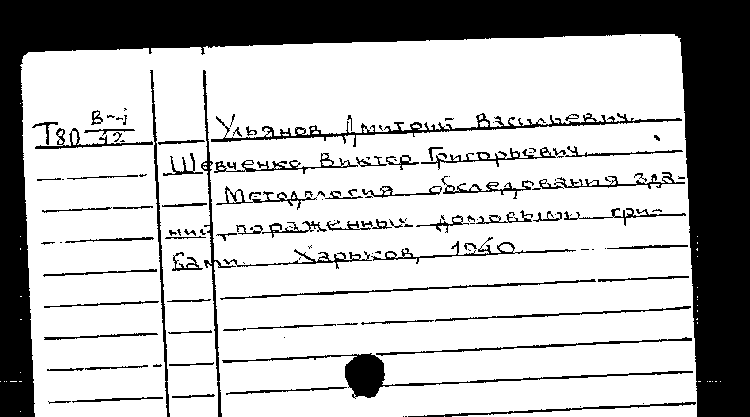 Т80 В-j/42
Ульянов, Дмитрий Васильевич.
Шевченко, Виктор Григорьевич.
Методология обследования зда-
ний, пораженных домовыми гри-
бами. Харьков, 1940.